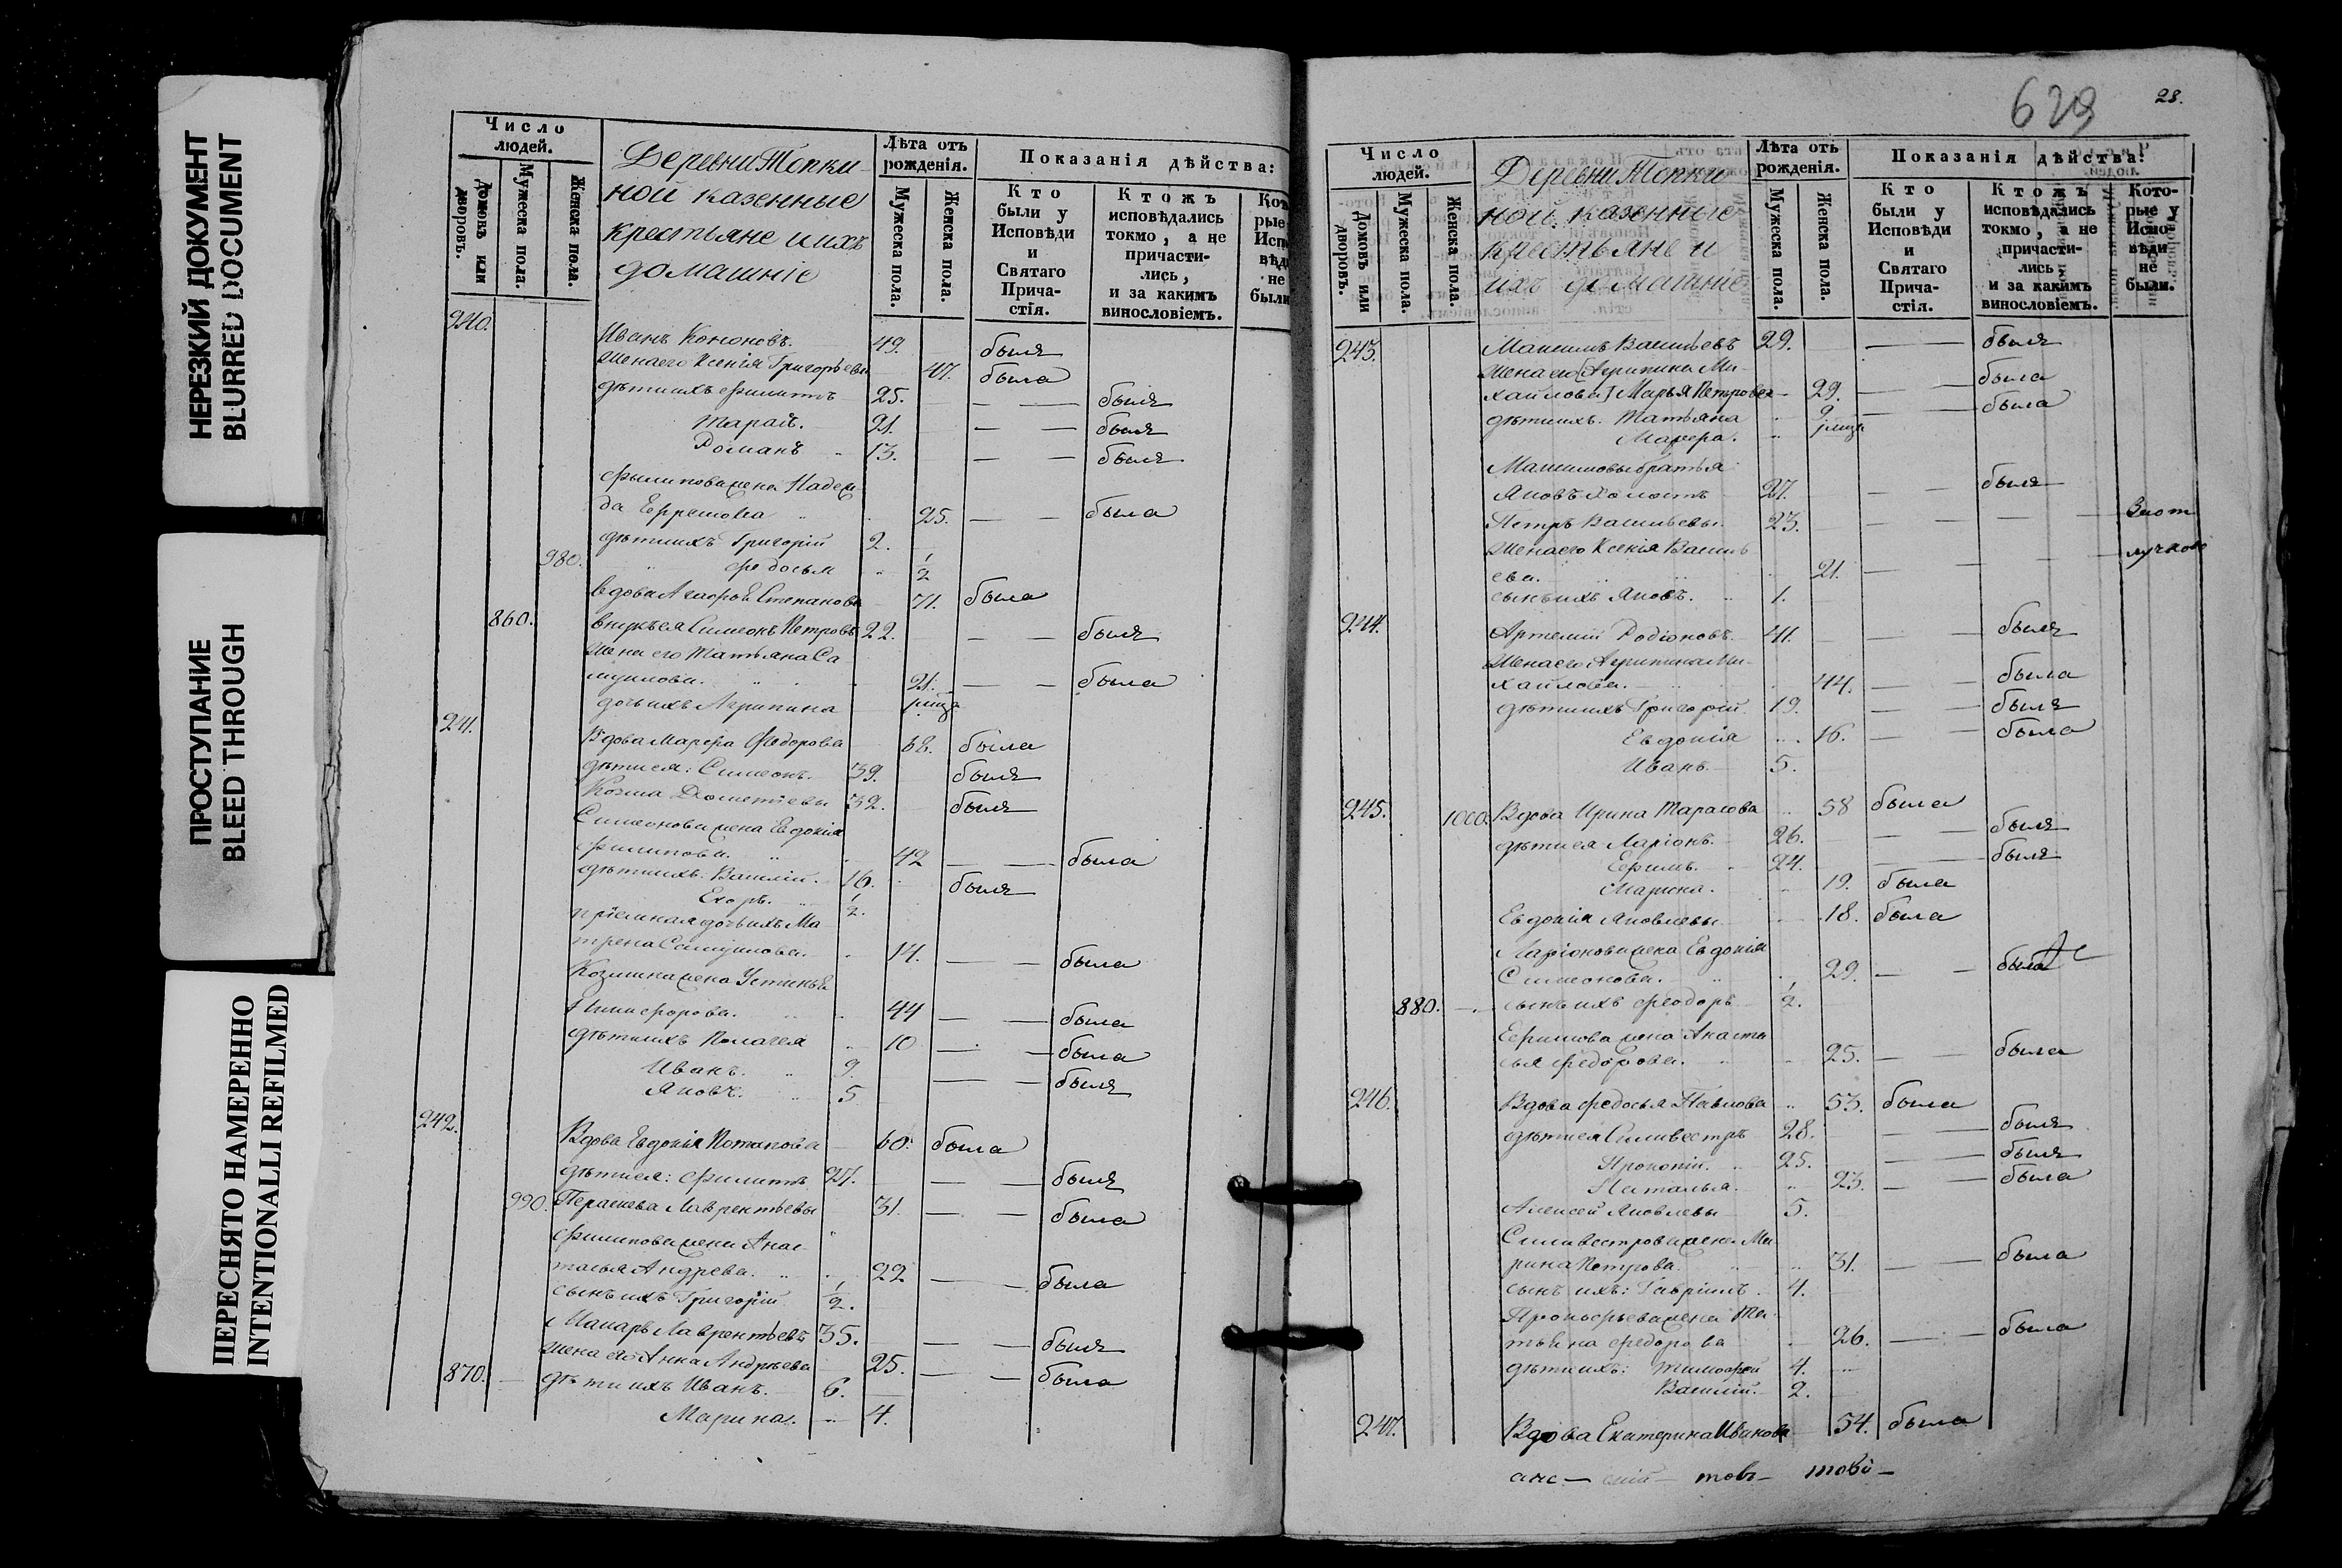 НЕРЕЗКИЙ ДОКУМЕНТ
BLURRED DOCUMENT
ПРОСТУПАНИЕ
BLEED THROUGH
ПЕРЕСНЯТО НАМЕРЕННО
INTENTIONALLI REFILMED
Число людей.
Домовъ или дворовъ.
Мужеска пола.
Женска пола.
Деревни Топки-
ной казенные
крестьяне и ихъ
домашніе
Лѣта отъ рожденія.
Мужеска пола.
Женска пола.
Показанія дѣйства:
Кто были у Исповѣди и Святаго Прича-стія.
Ктожъ исповѣдались токмо, а не причасти-лись, и за какимъ винословіемъ.
240. Иванъ Кононовъ. 49. былъ
Жена его Ксенія Григорьева 47. была
дѣти ихъ Филиппъ 25. — — былъ
Тарасъ. 21. — — былъ
Романъ 13. — — былъ
Филипова жена Надеж-
да Ефремова 25. — — была
дѣти ихъ Григорій 2.
980. Федосья 1/2
вдова Агафья Степанова 71. была
860. внукъ ея Симеонъ Петровъ 22. — — былъ
жена его Татьяна Са-
муилова. 21. — — была
дочь ихъ Агрипина
241. Вдова Марфа Федорова 68. была
дѣти ея: Симеонъ. 39. былъ
Козма Дометіевы 32. былъ
Симеонова жена Евдокія
Филипова. 42 — — была
дѣти ихъ: Василій. 16. былъ
Егоръ. 1/2.
пріемная дочь ихъ Ма-
трена Самуилова. 14. — — была
Козмина жена Устинья
Никифорова. 44 — — была
дѣти ихъ Пелагея 10 — — была
Иванъ. 9. — — былъ
Яковъ. 5
242. Вдова Евдокія Потапова 60. была
дѣти ея: Филиппъ 27. — — былъ
990. Парасковья Лаврентьевы 31. — — была
Филипова жена Анас-
тасья Андреева. 22 — — была
сынъ ихъ Григорій 1/2.
Макаръ Лаврентьевъ 35. — — былъ
жена его Анна Андреева 25. — — была
870. — дѣти ихъ Иванъ. 6.
Марина. 4.
629
28.
Число людей.
Домовъ или дворовъ.
Мужеска пола.
Женска пола.
Деревни Топки-
ной казенные
крестьяне и
ихъ домашніе
Лѣта отъ рожденія.
Мужеска пола.
Женска пола.
Показанія дѣйства:
Кто были у Исповѣди и Святаго Прича-стія.
Ктожъ исповѣдались токмо, а не причасти-лись, и за какимъ винословіемъ.
Кото-рые у Испо-вѣди не были.
243. Максимъ Васильевъ 29. — былъ
Жена его [Агрипина Ми-
хайлова] Марья Петрова 29. — — была
дѣти ихъ: Татьяна 9. — — была
Марфа.
Максимовы братья
Яковъ холостъ 27. — — былъ
Петръ Васильевы. 23.
Жена его Ксенія Василь
ева. 21.
сынъ ихъ Яковъ. 1.
244. Артемій Родіоновъ. 41. — былъ
Жена его Агрипина Ми-
хайлова. 44. — — была
дѣти ихъ Григорій 19. — — былъ
Евдокія 16. — — была
Иванъ 5.
245. 1000. Вдова Ирина Тарасова 58 была
дѣти ея Ларіонъ. 26. — — былъ
Ефимъ. 24. — — былъ
Марина. 19. была
Евдокія Яковлевы 18. была
Ларіонова жена Евдокія
Симеонова. 29. — — была
880. сынъ ихъ Феодоръ 1/2.
Ефимова жена Анаста
сья Федорова. 25. — — была
246. Вдова Федосья Павлова 53. была
дѣти ея Силивестръ 28. — — былъ
Прокопій. 25. — — былъ
Наталья. 23. — — была
Алексей Яковлевы 5.
Силивестрова жена Ма
рина Петрова. 31. — — была
сынъ ихъ: Гавріилъ. 4.
Прокофьева жена Та-
тьяна Федорова 26. — — была
дѣти ихъ: Тимофей 4.
Василій. 2.
247. Вдова Екатерина Иванова 54. была